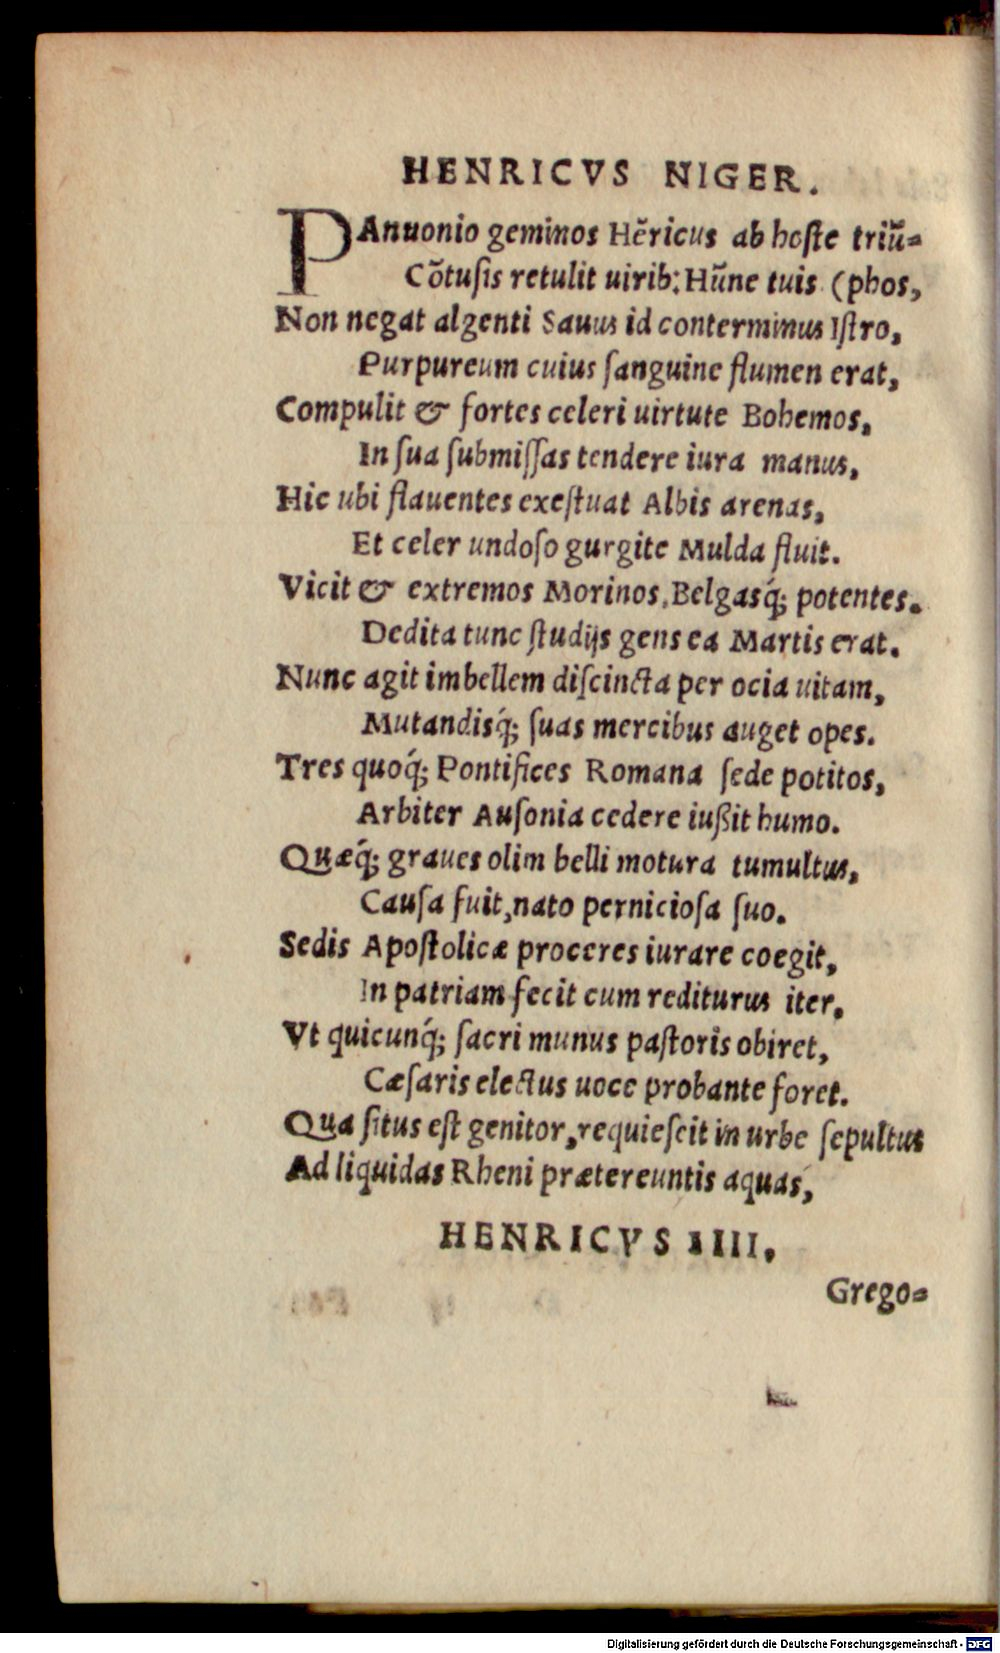 HENRICVS NIGER.
PAnuonio geminos Hẽricus ab hoste triũ=
Cõtusis retulit uirib: Hũne tuis (phos,
Non negat algenti Sauus id conterminus Istro,
Purpureum cuius sanguine flumen erat,
Compulit & fortes celeri uirtute Bohemos,
In sua submissas tendere iura manus,
Hic ubi flauentes exestuat Albis arenas,
Et celer undoso gurgite Mulda fluit.
Vicit & extremos Morinos, Belgasq́; potentes.
Dedita tunc studijs gens ea Martis erat.
Nunc agit imbellem discincta per ocia uitam,
Mutandisq́; suas mercibus auget opes.
Tres quoq́; Pontifices Romana sede potitos,
Arbiter Ausonia cedere iußit humo.
Quæq́; graues olim belli motura tumultus,
Causa fuit, nato perniciosa suo.
Sedis Apostolicæ proceres iurare coegit,
In patriam fecit cum rediturus iter.
Vt quicunq́; sacri munus pastoris obiret,
Cæsaris electus uoce probante foret.
Qua situs est genitor, requiescit in urbe sepultus
Ad liquidas Rheni prætereuntis aquas,
HENRICVS IIII.
Grego=
Digitalisierung gefördert durch die Deutsche Forschungsgemeinschaft - DFG